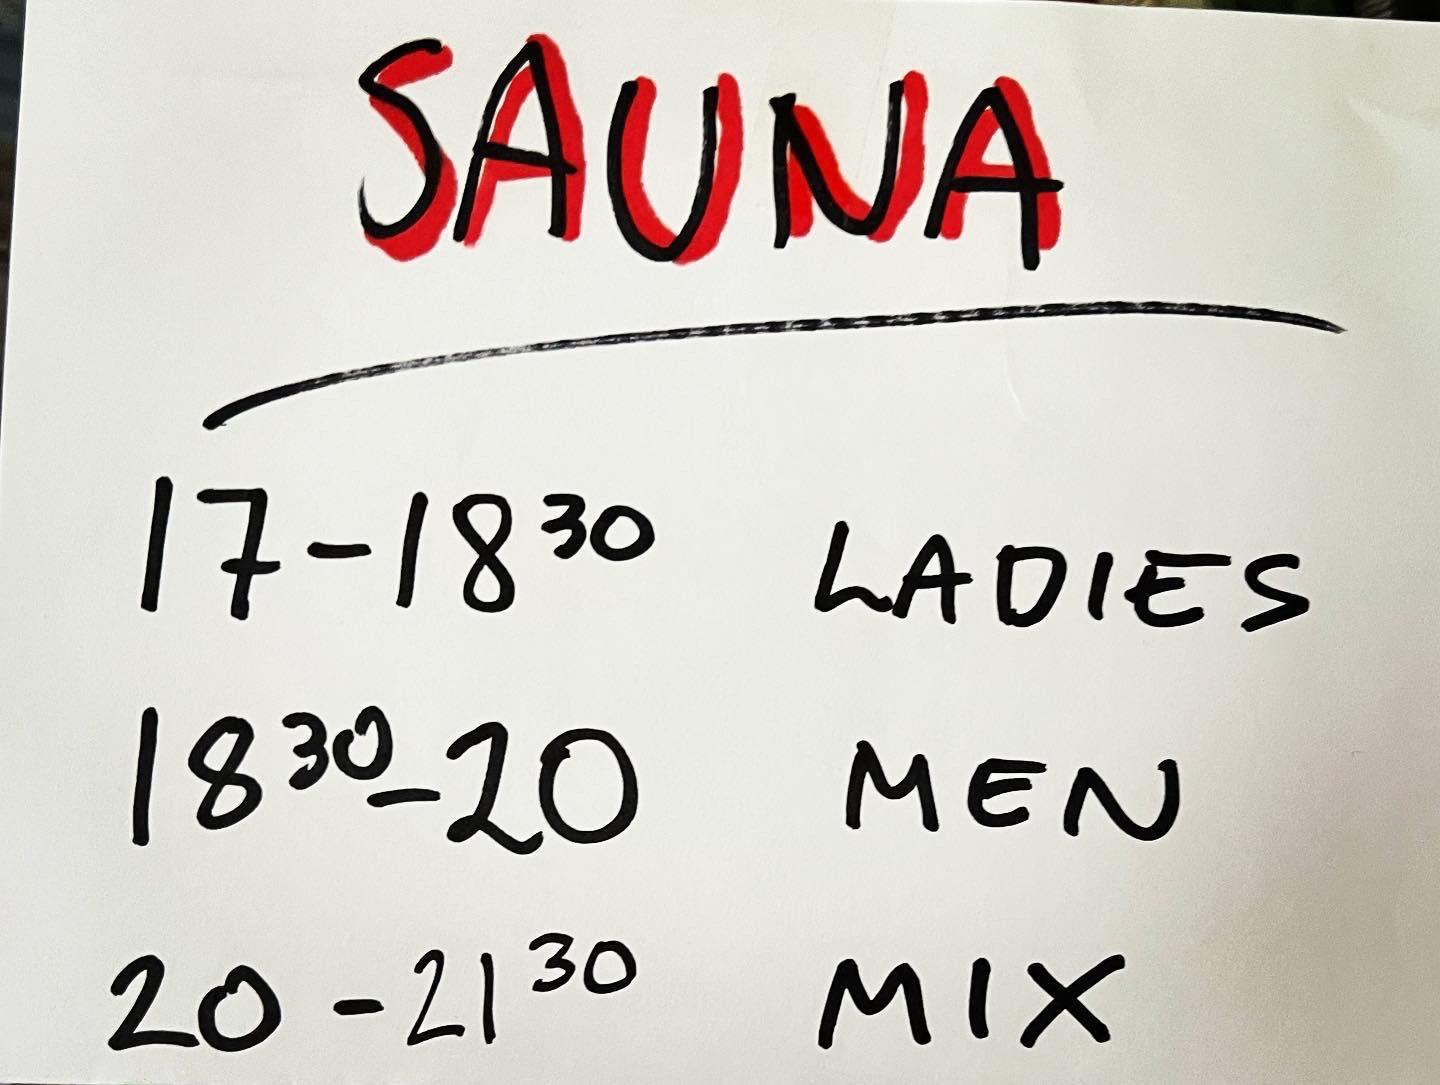 SAUNA
17-18 30 LADIES
18 30-20 MEN
20-21 30 MIX